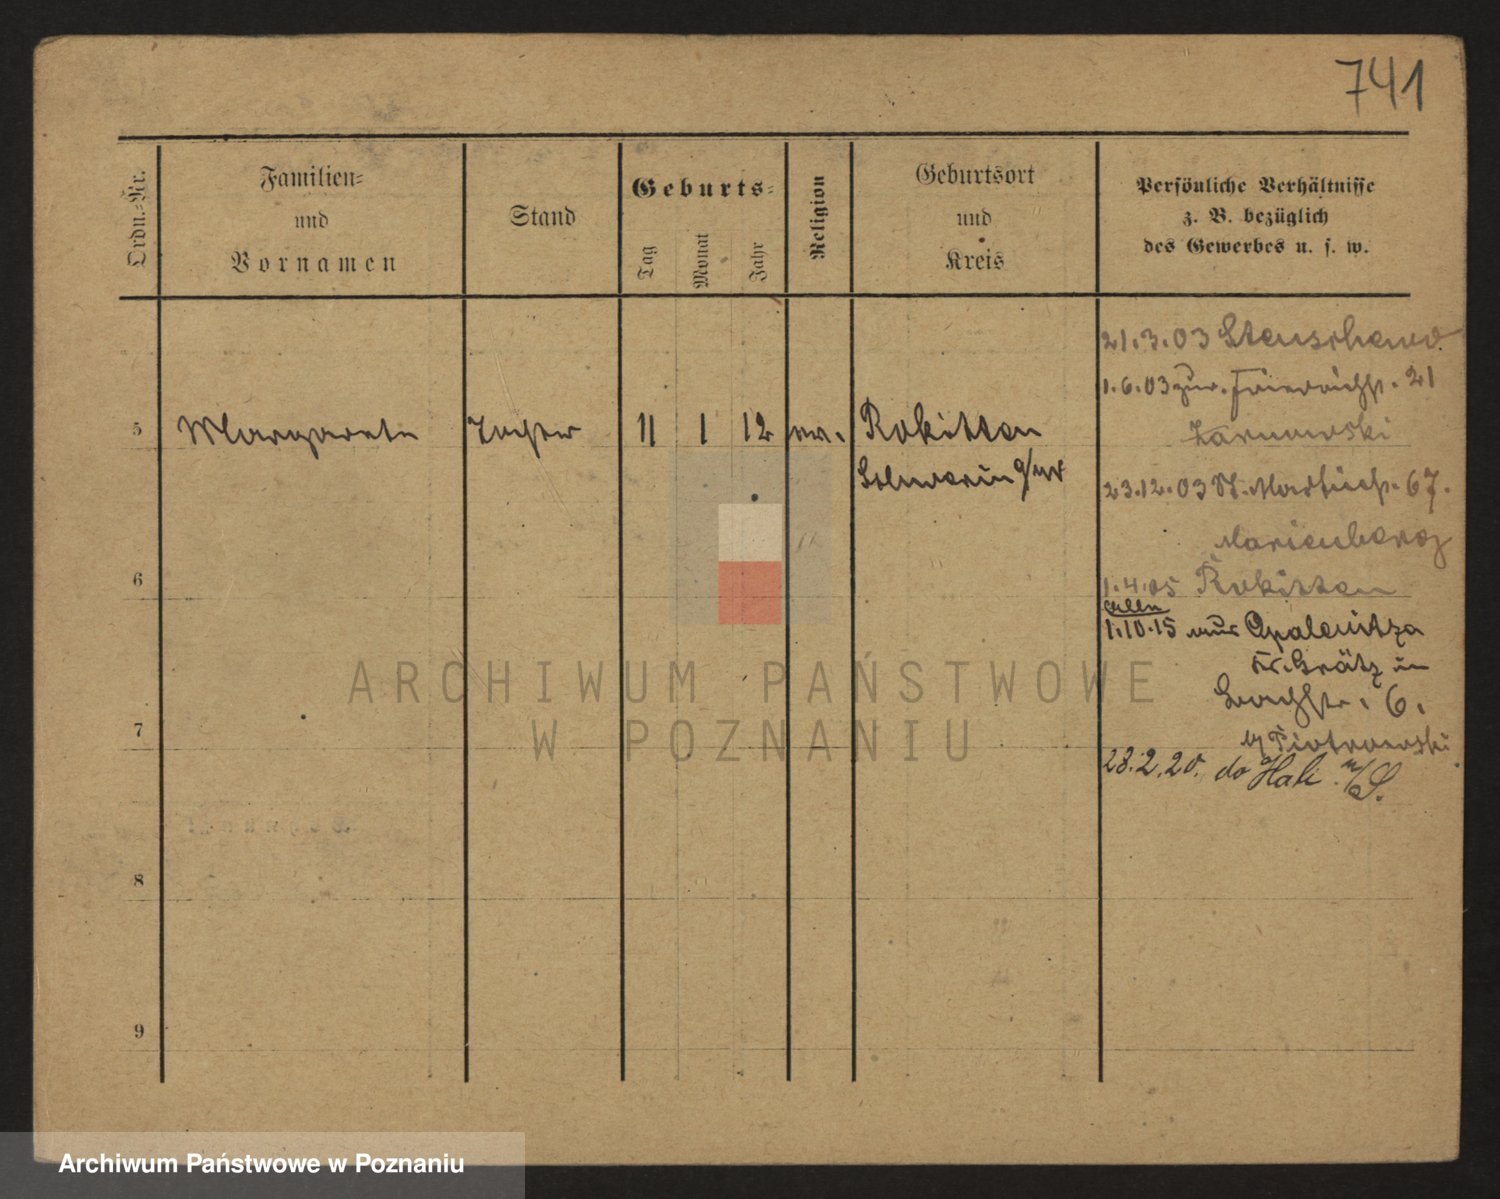 741
Ordn.-Nr.
Familien-
und
Vornamen
Stand
Geburts-
Tag
Monat
Jahr
Religion
Geburtsort
und
Kreis
Persönliche Verhältnisse
z. B. bezüglich
des Gewerbes u. s. w.
21.3.03 Stenschewo
1.6.03 zur. Friedrichstr. 21
5 Margarete Tochter 11 1 12 ev. Rokitten
Schwerin a/W
23.12.03 St. Martinstr. 67.
Marienberg
6
1.4.05 Rokitten
allein
1.10.15 aus Opalenitza
Kr. Grätz in
Bachstr. 6.
b/ Piotrowski
7
28.2.20. do Hale n/S.
8
9
ARCHIWUM PAŃSTWOWE
W POZNANIU
Archiwum Państwowe w Poznaniu